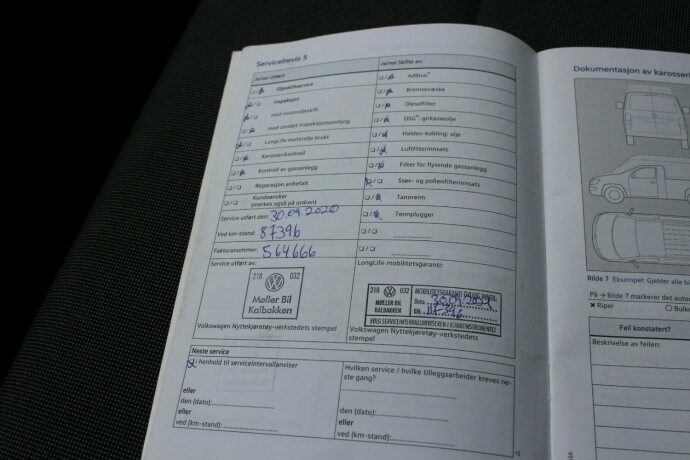 Servicebevis 5
Ja/nei Utført:
Ja/nei Skifte av:
Oljeskiftservice
Inspeksjon
med motoroljeskift
med utvidet inspeksjonsomfang
LongLife motorolje brukt
Karosserikontroll
Kontroll av gassanlegg
Reparasjon anbefalt
Kundeønsker
(merkes også på ordren)
AdBlue®
Bremsevæske
Dieselfilter
DSG®: girkasseolje
Haldex-kobling: olje
Luftfilterinnsats
Filter for flytende gassanlegg
Støv- og pollenfilterinnsats
Tannreim
Tennplugger
Service utført den: 30.09.2020
Ved km-stand: 87396
Fakturanummer: 564666
Service utført av:
218 032
Møller Bil
Kalbakken
Volkswagen Nyttekjøretøy-verkstedets stempel
LongLife mobilitetsgaranti:
218 032
MØLLER BIL
KALBAKKEN
MOBILITETSGARANTI
Dato:
Volkswagen Nyttekjøretøy-verkstedets
stempel
Neste service
i henhold til serviceintervallanviser
eller
den (dato):
eller
ved (km-stand):
Hvilken service / hvilke tilleggsarbeider kreves ne-
ste gang?
den (dato):
eller
ved (km-stand):
Dokumentasjon av karosseri
Bilde 7 Eksempel: Gjelder alle
På → Bilde 7 markerer det
× Riper
Bulk
Feil konstatert?
Beskrivelse av feilen: